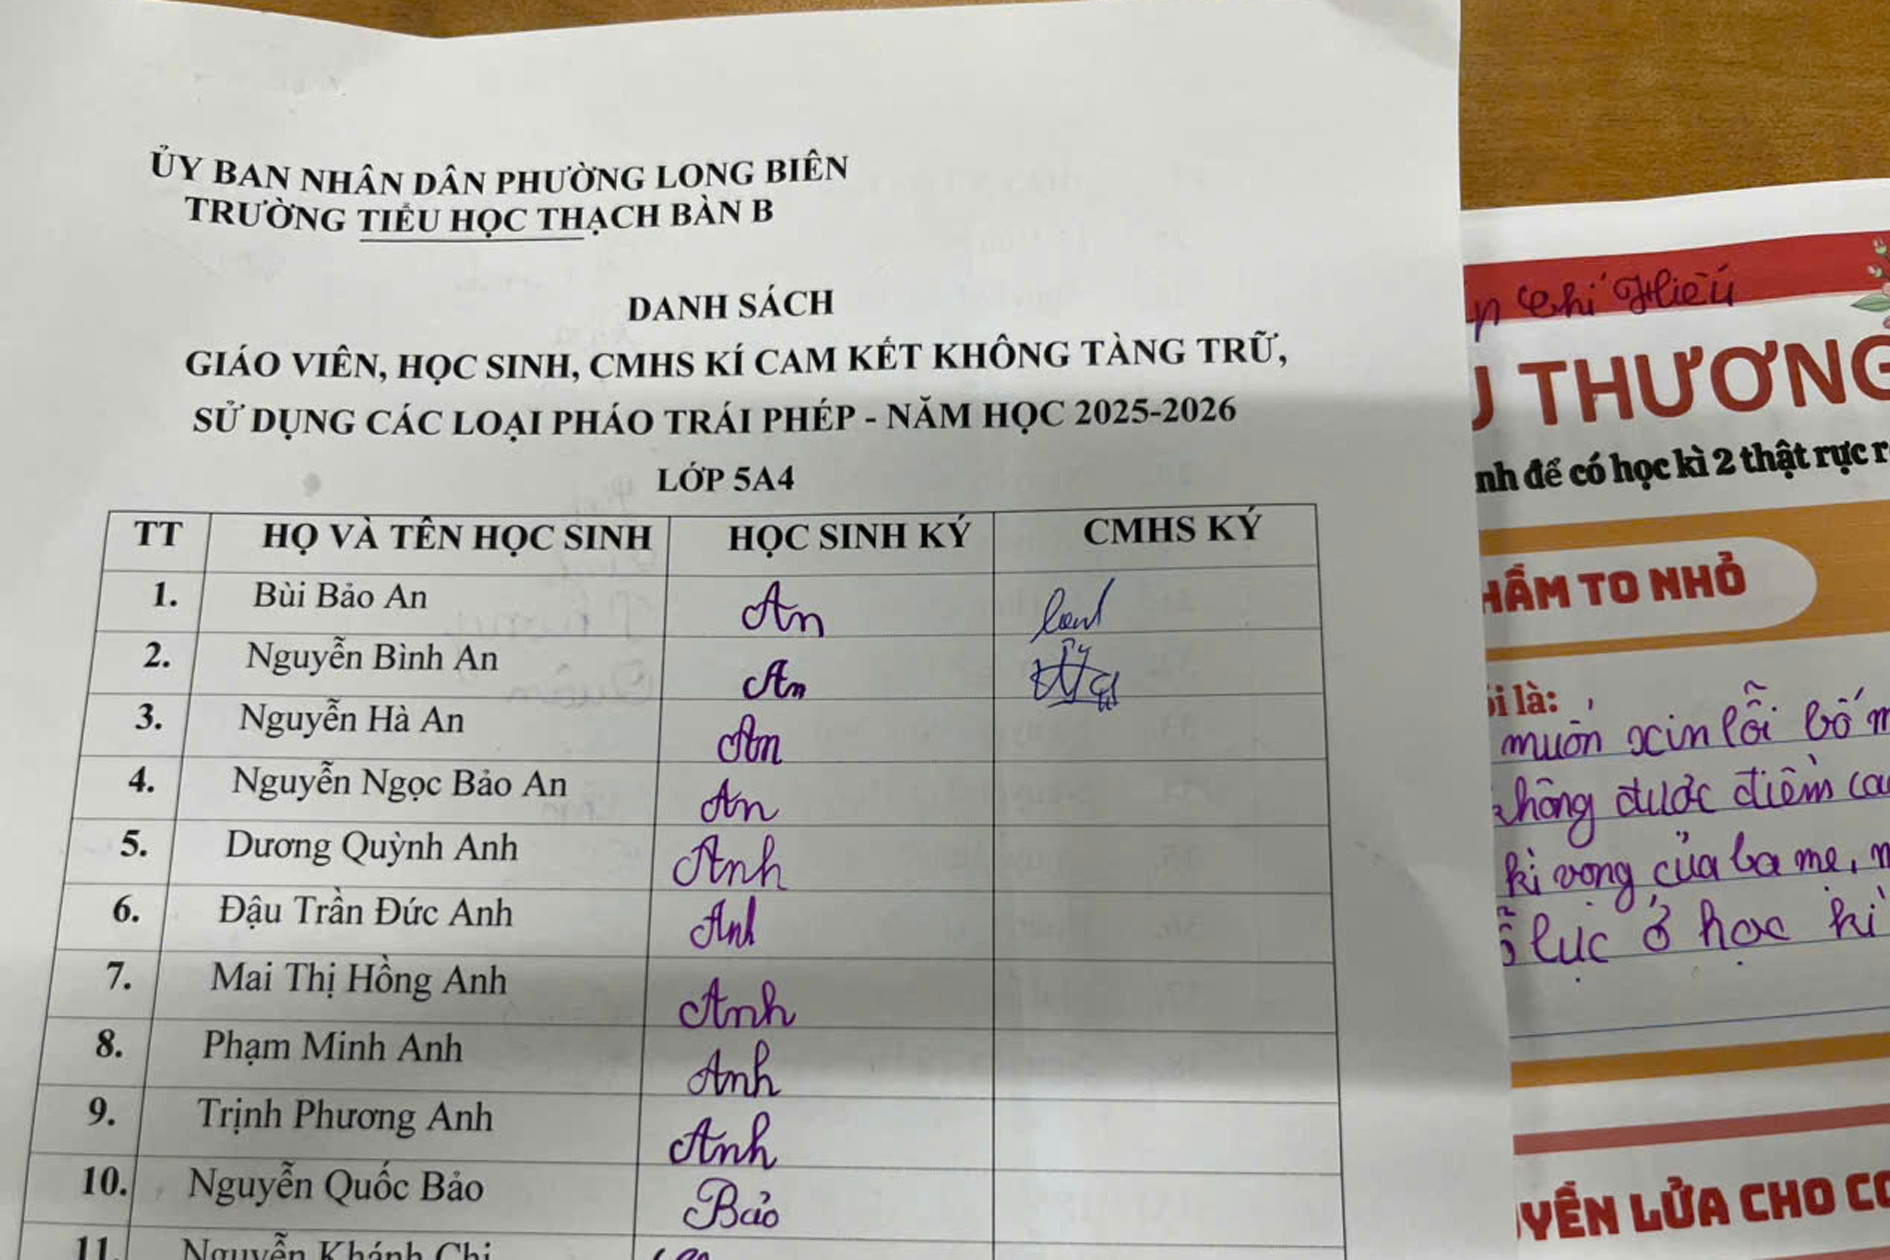 ỦY BAN NHÂN DÂN PHƯỜNG LONG BIÊN
TRƯỜNG TIỂU HỌC THẠCH BÀN B
DANH SÁCH
GIÁO VIÊN, HỌC SINH, CMHS KÍ CAM KẾT KHÔNG TÀNG TRỮ,
SỬ DỤNG CÁC LOẠI PHÁO TRÁI PHÉP - NĂM HỌC 2025-2026
LỚP 5A4
TT HỌ VÀ TÊN HỌC SINH HỌC SINH KÝ CMHS KÝ
1. Bùi Bảo An An
2. Nguyễn Bình An An
3. Nguyễn Hà An An
4. Nguyễn Ngọc Bảo An An
5. Dương Quỳnh Anh Anh
6. Đậu Trần Đức Anh Anh
7. Mai Thị Hồng Anh Anh
8. Phạm Minh Anh Anh
9. Trịnh Phương Anh Anh
10. Nguyễn Quốc Bảo Bảo
11. Nguyễn Khánh Chi
Chí Hiếu
THƯƠNG
để có học kì 2 thật rực
THẦM TO NHỎ
là:
muốn xin lỗi bố
không được điểm
kì vọng của ba mẹ,
lực ở học kì
LỬA CHO